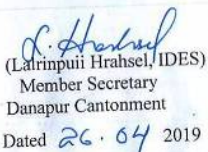 L. Hrahsel
(Lalrinpuii Hrahsel, IDES)
Member Secretary
Danapur Cantonment
Dated 26.04 2019